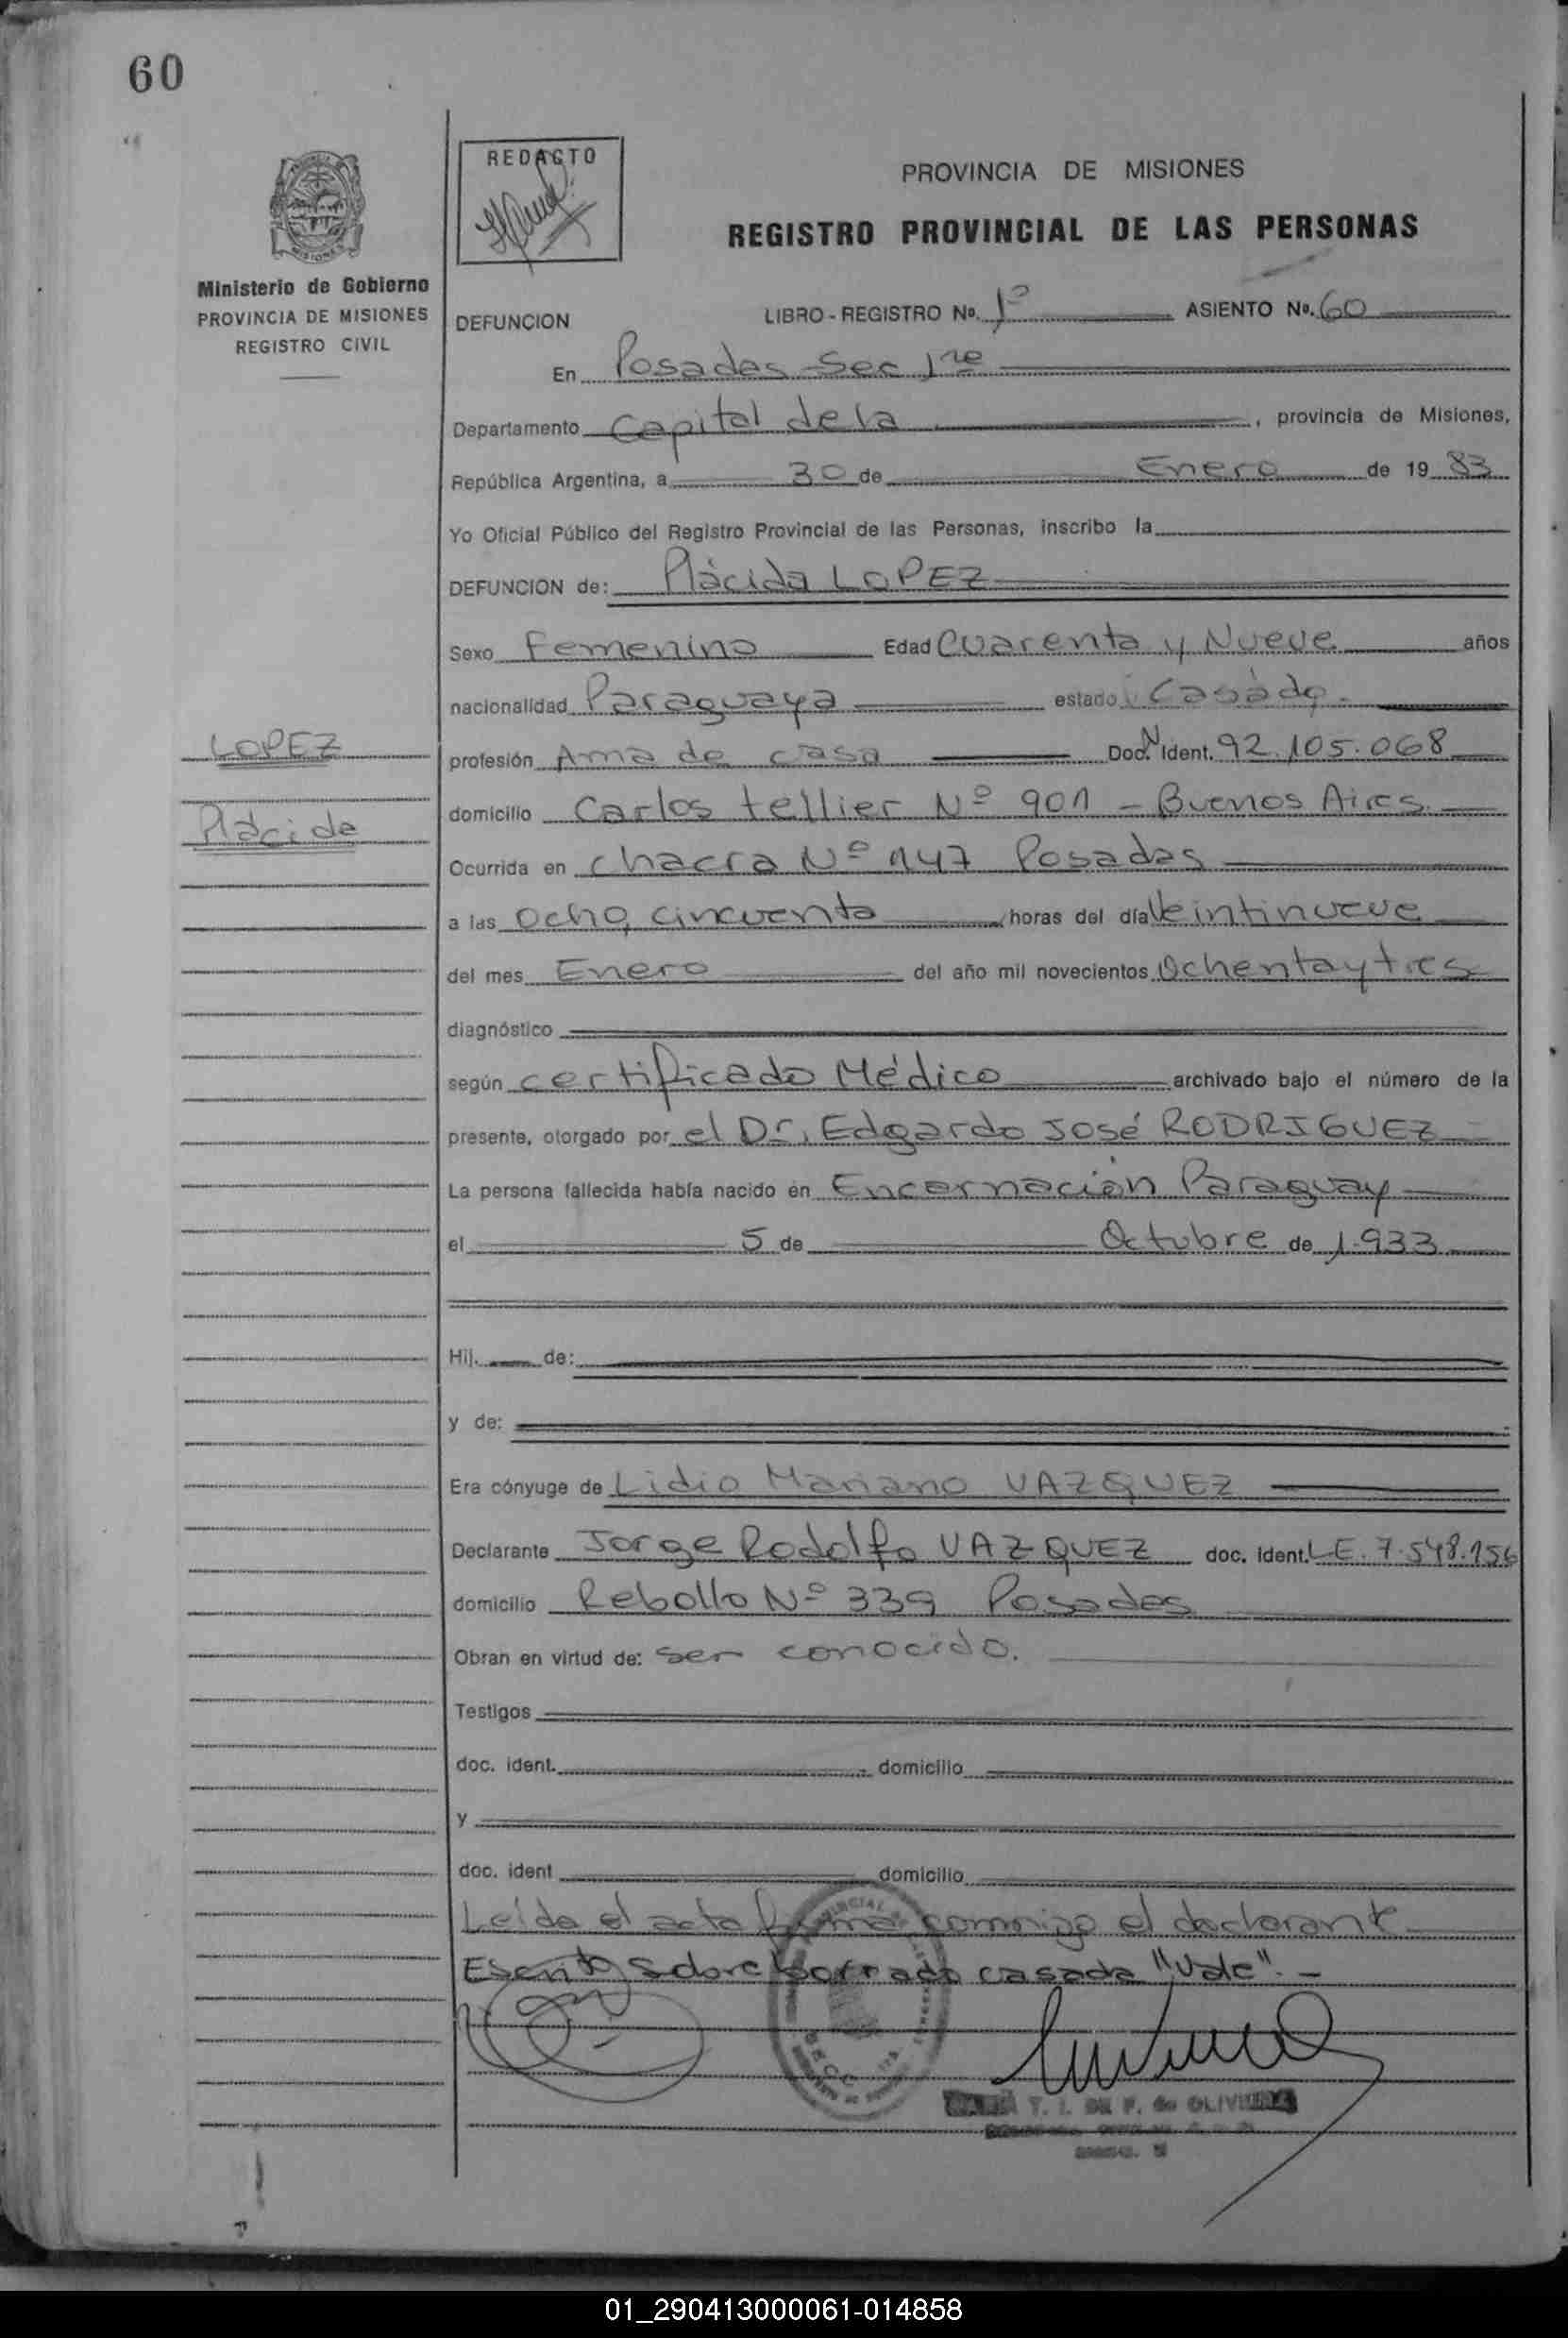 60
REDACTO
PROVINCIA DE MISIONES
REGISTRO PROVINCIAL DE LAS PERSONAS
Ministerio de Gobierno
PROVINCIA DE MISIONES
REGISTRO CIVIL
DEFUNCION LIBRO - REGISTRO No. 1º ASIENTO No. 60
En Posadas Sec 1ra
Departamento Capital de la , provincia de Misiones,
República Argentina, a 30 de Enero de 19 83
Yo Oficial Público del Registro Provincial de las Personas, inscribo la
DEFUNCION de: Plácida LOPEZ
Sexo Femenino Edad Cuarenta y Nueve años
nacionalidad Paraguaya estado Casada.
LOPEZ
profesión Ama de casa Doc. N Ident. 92.105.068
Plácida
domicilio Carlos tellier Nº 901 - Buenos Aires.
Ocurrida en chacra Nº 147 Posadas
a las Ocho, cincuenta horas del día Veintinueve
del mes Enero del año mil novecientos Ochenta y tres
diagnóstico
según certificado Médico archivado bajo el número de la
presente, otorgado por el Dr. Edgardo José RODRIGUEZ
La persona fallecida había nacido en Encarnación Paraguay
el 5 de Octubre de 1.933
Hij. de:
y de:
Era cónyuge de Lidio Mariano VAZQUEZ
Declarante Jorge Rodolfo VAZQUEZ doc. Ident. L.E. 7.548.156
domicilio Rebollo Nº 339 Posadas
Obran en virtud de: ser conocido.
Testigos
doc. ident. domicilio
y
doc. ident domicilio
Leída el acta firma conmigo el declarante
Escrito sobre borrado casada "Vale". -
T. I. DE F. de OLIVEIRA
01_290413000061-014858